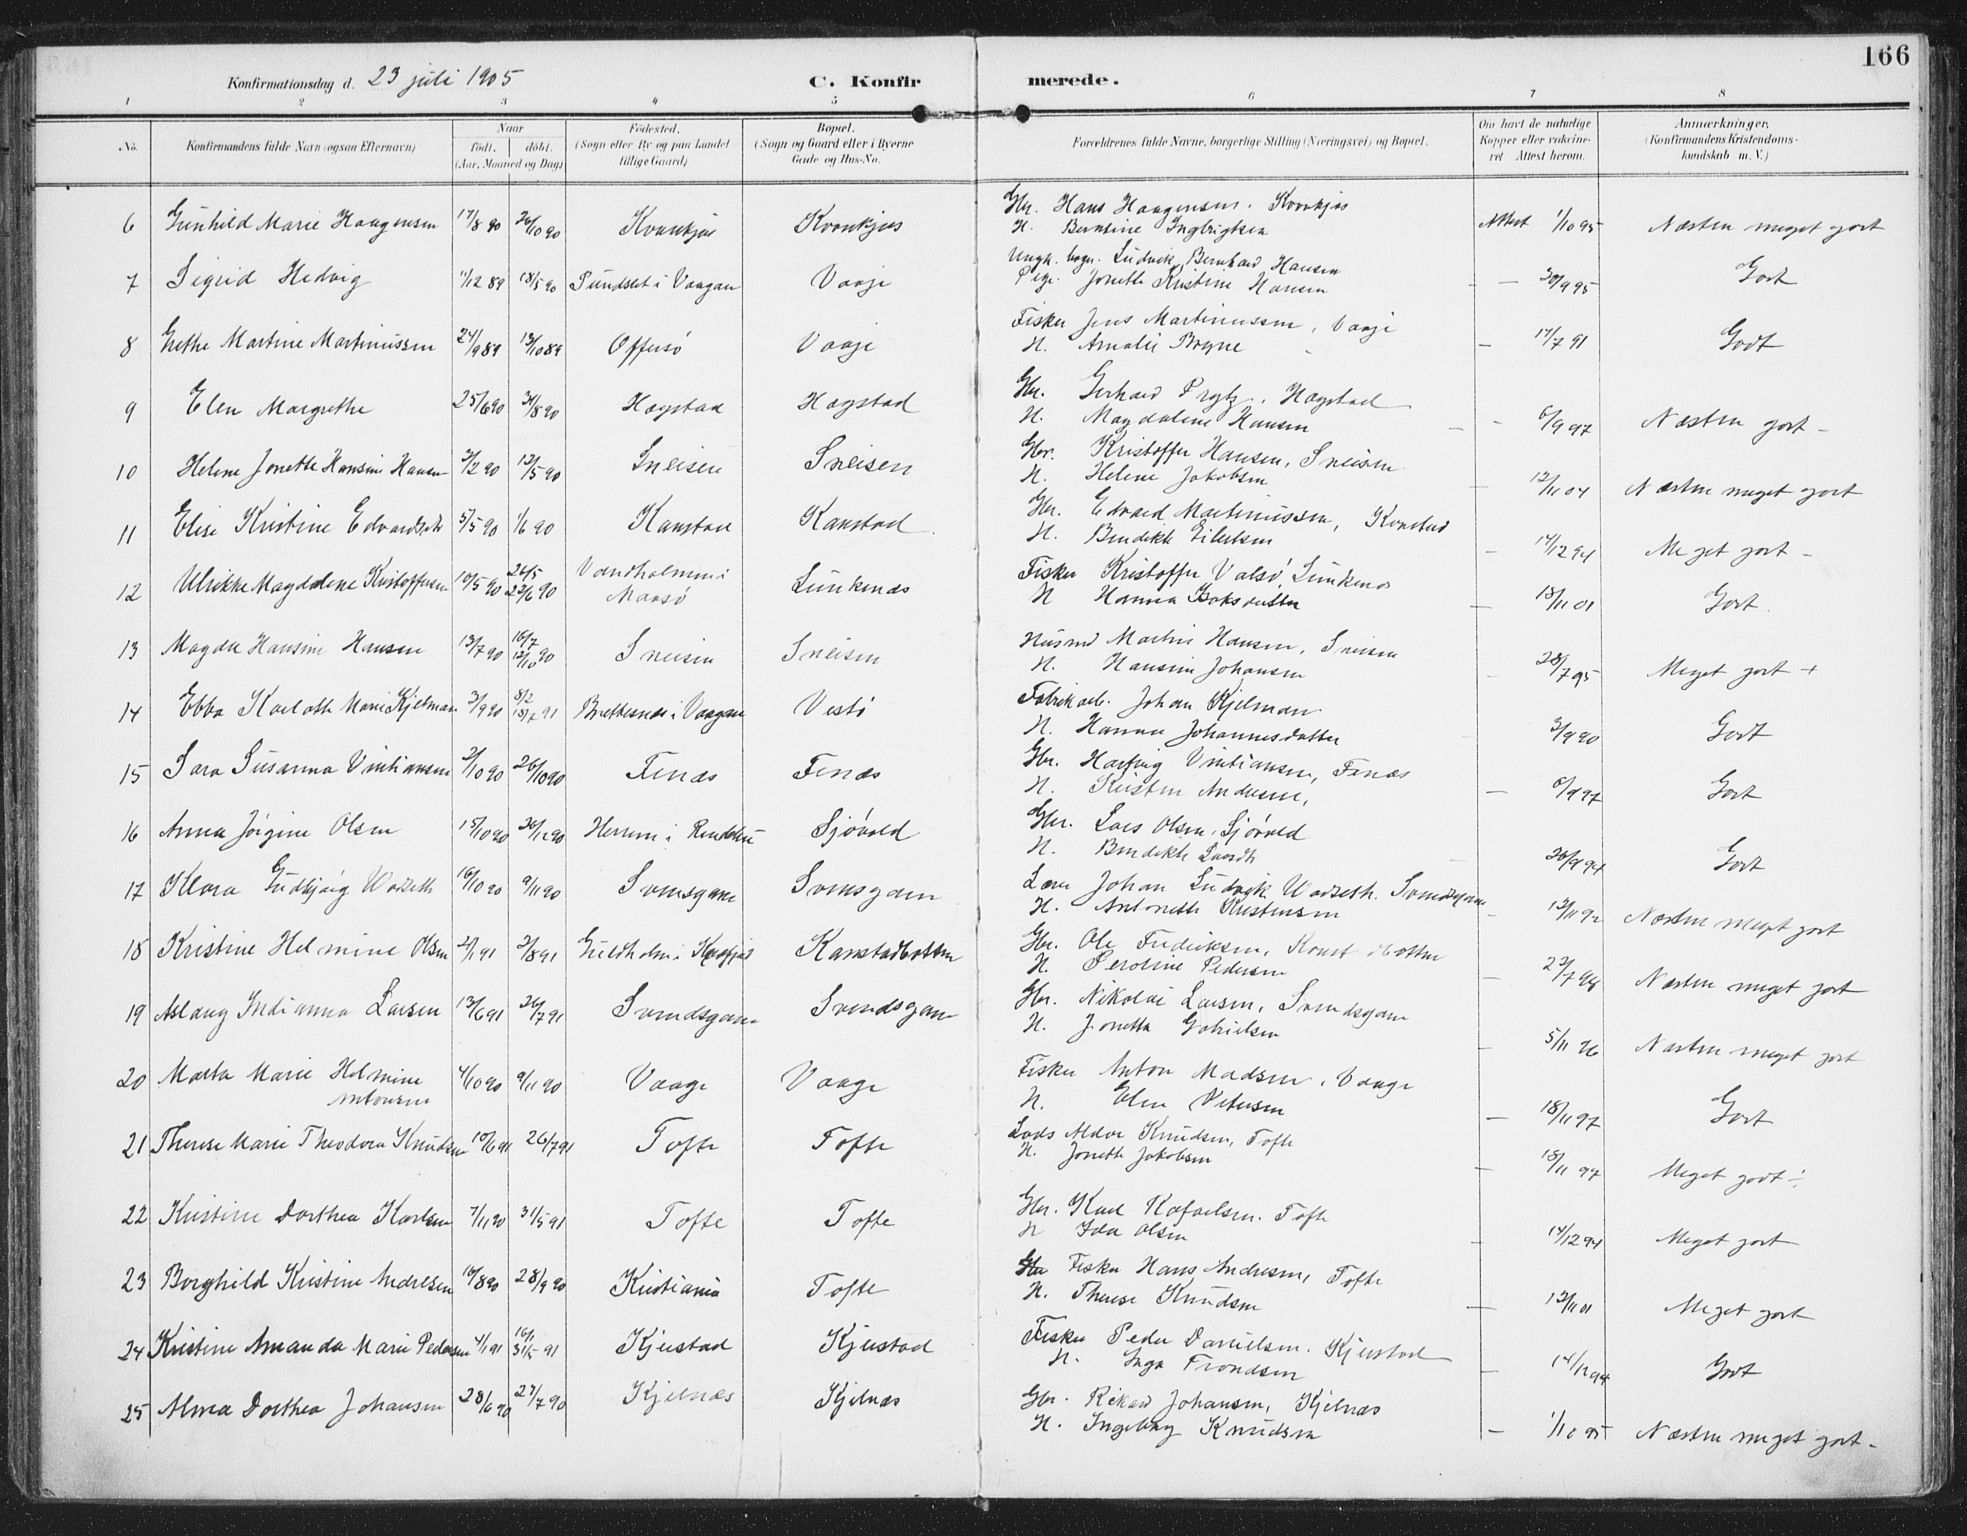 166
Konfirmationsdag d. 23 juli 1905 C. Konfir merede.
1 2 3 4 5 6 7 8
No. Konfirmandens fulde Navn (ogsaa Efternavn) Naar født. døbt. (Aar, Maaned og Dag) Fødested. (Sogn eller By og paa Landet tillige Gaard) Bopæl. (Sogn og Gaard eller i Byerne Gade og Hus-No. Forældrenes fulde Navne, borgerlige Stilling (Næringsvei) og Bopæl. Om havt de naturlige Kopper eller vakcineret. Attest herom. Anmærkninger. (Konfirmandens Kristendomskundskab m. V.)
6 Gunhild Marie Haagensen 17/8 90 26/10 90 Kvankjøs Kvankjøs Gbr. Hans Haagensen. Kvankjøs Attest 1/10 95 Næsten meget godt
H. Berntine Ingbrigtsen
7 Sigrid Hedvig 11/12 89 18/5 90 Sundslet i Vaagan Vaaje Ungk. Ludvik Bernhard Hansen - 30/9 95 Godt
Pige. Jonette Kristine Hansen
8 Grethe Martine Martinussen 24/9 89 13/10 89 Offersø Vaaje Fisker Jens Martinussen, Vaaje - 17/7 91 Godt
H. Amalie Brygne
9 Elen Margrethe 25/6 90 31/8 90 Hagstad Hagstad Gbr. Gerhard Prytz, Hagstad - 6/9 97 Næsten godt -
H. Magdalene Hansen
10 Helene Jonette Hansine Hansen 3/2 90 12/5 90 Sneisen Sneisen Gbr. Kristoffer Hansen, Sneisen - 12/11 04 Næsten meget godt
H. Helene Jakobsen
11 Elise Kristine Edvardsdtr 5/5 90 1/6 90 Kanstad Kanstad Gbr. Edvard Martinussen, Kanstad - 14/12 94 Meget godt -
H. Bendikte Eilertsen
12 Ulrikke Magdalene Kristoffersen 10/5 90 26/5 22/6 90 Vandholmen i Maasø Lunkenæs Fisker Kristoffer Valsø, Lunkenæs - 18/11 01 Godt.
H Hanna Isaksdatter
13 Magda Hansine Hansen 13/7 90 16/7 12/10 90 Sneisen Sneisen Husmd Martin Hansen, Sneisen - 28/7 95 Meget godt +
H. Hansine Johansen
14 Ebba Karlotte Marie Kjelman 3/9 90 8/2 91 Brettesnes i Vaagan Vestø Fabrikarb. Johan Kjelman - 3/9 90 Godt
H. Hanna Johannesdatter
15 Sara Susanna Vintiansen 2/10 90 26/10 90 Finæs Finæs Gbr. Hartvig Vintiansen, Finæs - 6/9 97 Godt
H. Kristen Andersen,
16 Anna Jørgine Olsen 15/10 90 26/12 90 Herrem i Rindalen Sjøvold Gbr. Lars Olsen, Sjøvold 26/9 94 Godt
H. Bendikte Larsdtr
17 Klara Gudbjørg Watzeth 16/10 90 9/11 90 Svensgam Svensgam Lærer Johan Ludvigk Watzeth. Svendsgam - 13/11 92 Næsten meget godt
H. Antonette Kristensen
18 Kristine Helmine Olsen 2/1 91 2/8 91 Guldholm i Kvæfjord Kanstadbotten Gbr. Ole Fredriksen, Kanstadbotten - 23/7 98 Næsten meget godt
H. Seroline Pedersen
19 Aslaug Indianna Larsen 13/6 91 26/7 91 Svendsgam Svendsgam Gbr. Nikolai Larsen, Svendsgam - 5/11 96 Næsten meget godt
H. Jonetta Gabrielsen
20 Marta Marie Helmine Antonsen 4/10 90 9/11 90 Vaage Vaage Fisker Anton Madsen, Vaage - 18/11 97 Godt
H. Elen Petersen
21 Therese Marie Theodora Knudsen 10/6 91 26/7 91 Tofte Tofte Lods Aldor Knudsen, Tofte - 18/11 97 Meget godt ÷
H. Jonette Jakobsen
22 Kristine Dorthea Karlsen 7/11 90 31/5 91 Tofte Tofte Gbr. Karl Rafaelsen. Tofte - 14/12 94 Meget godt
H Ida Olsen
23 Borghild Kristine Andresen 16/8 90 28/9 90 Kristiania Tofte Gbr Fisker Hans Andresen, Tofte - 12/11 01 Meget godt
H. Therese Knudsen
24 Kristine Amanda Marie Pedersen 4/1 91 16/1 31/5 91 Kjerstad Kjerstad Fisker Peder Danielsen. Kjerstad - 14/12 94 Godt
H. Inga Trondsen
25 Alma Dorthea Johansen 28/6 90 27/7 90 Kjelnæs Kjelnæs Gbr. Rikard Johansen, Kjelnæs - 1/10 95 Næsten meget godt -
H. Ingeborg Knudsen